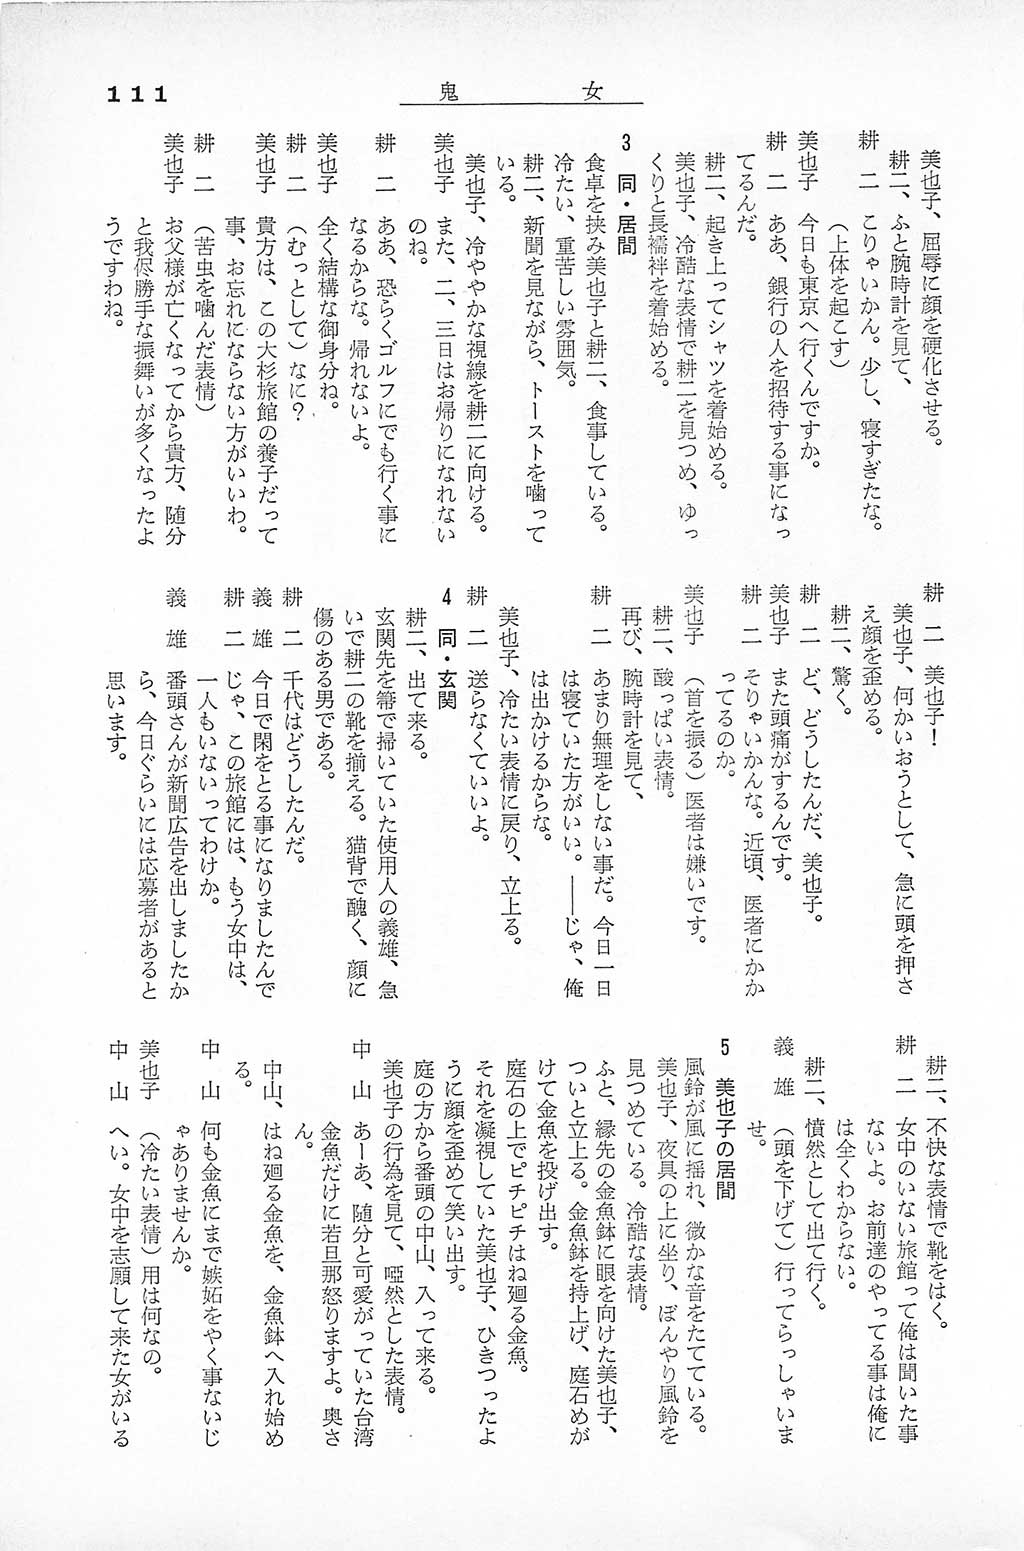 111
鬼女
美也子、屈辱に顔を硬化させる。
耕二、ふと腕時計を見て、
耕　二　こりゃいかん。少し、寝すぎたな。
（上体を起こす）
美也子　今日も東京へ行くんですか。
耕　二　ああ、銀行の人を招待する事になっ
てるんだ。
耕二、起き上ってシャツを着始める。
美也子、冷酷な表情で耕二を見つめ、ゆっ
くりと長襦袢を着始める。
3　同・居間
食卓を挟み美也子と耕二、食事している。
冷たい、重苦しい雰囲気。
耕二、新聞を見ながら、トーストを嚙って
いる。
美也子、冷ややかな視線を耕二に向ける。
美也子　また、二、三日はお帰りになれない
のね。
耕　二　ああ、恐らくゴルフにでも行く事に
なるからな。帰れないよ。
美也子　全く結構な御身分ね。
耕　二　（むっとして）なに？
美也子　貴方は、この大杉旅館の養子だって
事、お忘れにならない方がいいわ。
耕　二　（苦虫を嚙んだ表情）
美也子　お父様が亡くなってから貴方、随分
と我侭勝手な振舞いが多くなったよ
うですわね。
耕　二　美也子！
美也子、何かいおうとして、急に頭を押さ
え顔を歪める。
耕二、驚く。
耕　二　ど、どうしたんだ、美也子。
美也子　また頭痛がするんです。
耕　二　そりゃいかんな。近頃、医者にかか
ってるのか。
美也子　（首を振る）医者は嫌いです。
耕二、酸っぱい表情。
再び、腕時計を見て、
耕　二　あまり無理をしない事だ。今日一日
は寝ていた方がいい。――じゃ、俺
は出かけるからな。
美也子、冷たい表情に戻り、立上る。
耕　二　送らなくていいよ。
4　同・玄関
耕二、出て来る。
玄関先を箒で掃いていた使用人の義雄、急
いで耕二の靴を揃える。猫背で醜く、顔に
傷のある男である。
耕　二　千代はどうしたんだ。
義　雄　今日で閑をとる事になりましたんで
耕　二　じゃ、この旅館には、もう女中は、
一人もいないってわけか。
義　雄　番頭さんが新聞広告を出しましたか
ら、今日ぐらいには応募者があると
思います。
耕二、不快な表情で靴をはく。
耕　二　女中のいない旅館って俺は聞いた事
ないよ。お前達のやってる事は俺に
は全くわからない。
耕二、憤然として出て行く。
義　雄　（頭を下げて）行ってらっしゃいま
せ。
5　美也子の居間
風鈴が風に揺れ、微かな音をたてている。
美也子、夜具の上に坐り、ぼんやり風鈴を
見つめている。冷酷な表情。
ふと、縁先の金魚鉢に眼を向けた美也子、
ついと立上る。金魚鉢を持上げ、庭石めが
けて金魚を投げ出す。
庭石の上でピチピチはね廻る金魚。
それを凝視していた美也子、ひきつったよ
うに顔を歪めて笑い出す。
庭の方から番頭の中山、入って来る。
美也子の行為を見て、啞然とした表情。
中　山　あーあ、随分と可愛がっていた台湾
金魚だけに若旦那怒りますよ。奥さ
ん。
中山、はね廻る金魚を、金魚鉢へ入れ始め
る。
中　山　何も金魚にまで嫉妬をやく事ないじ
ゃありませんか。
美也子　（冷たい表情）用は何なの。
中　山　へい。女中を志願して来た女がいる